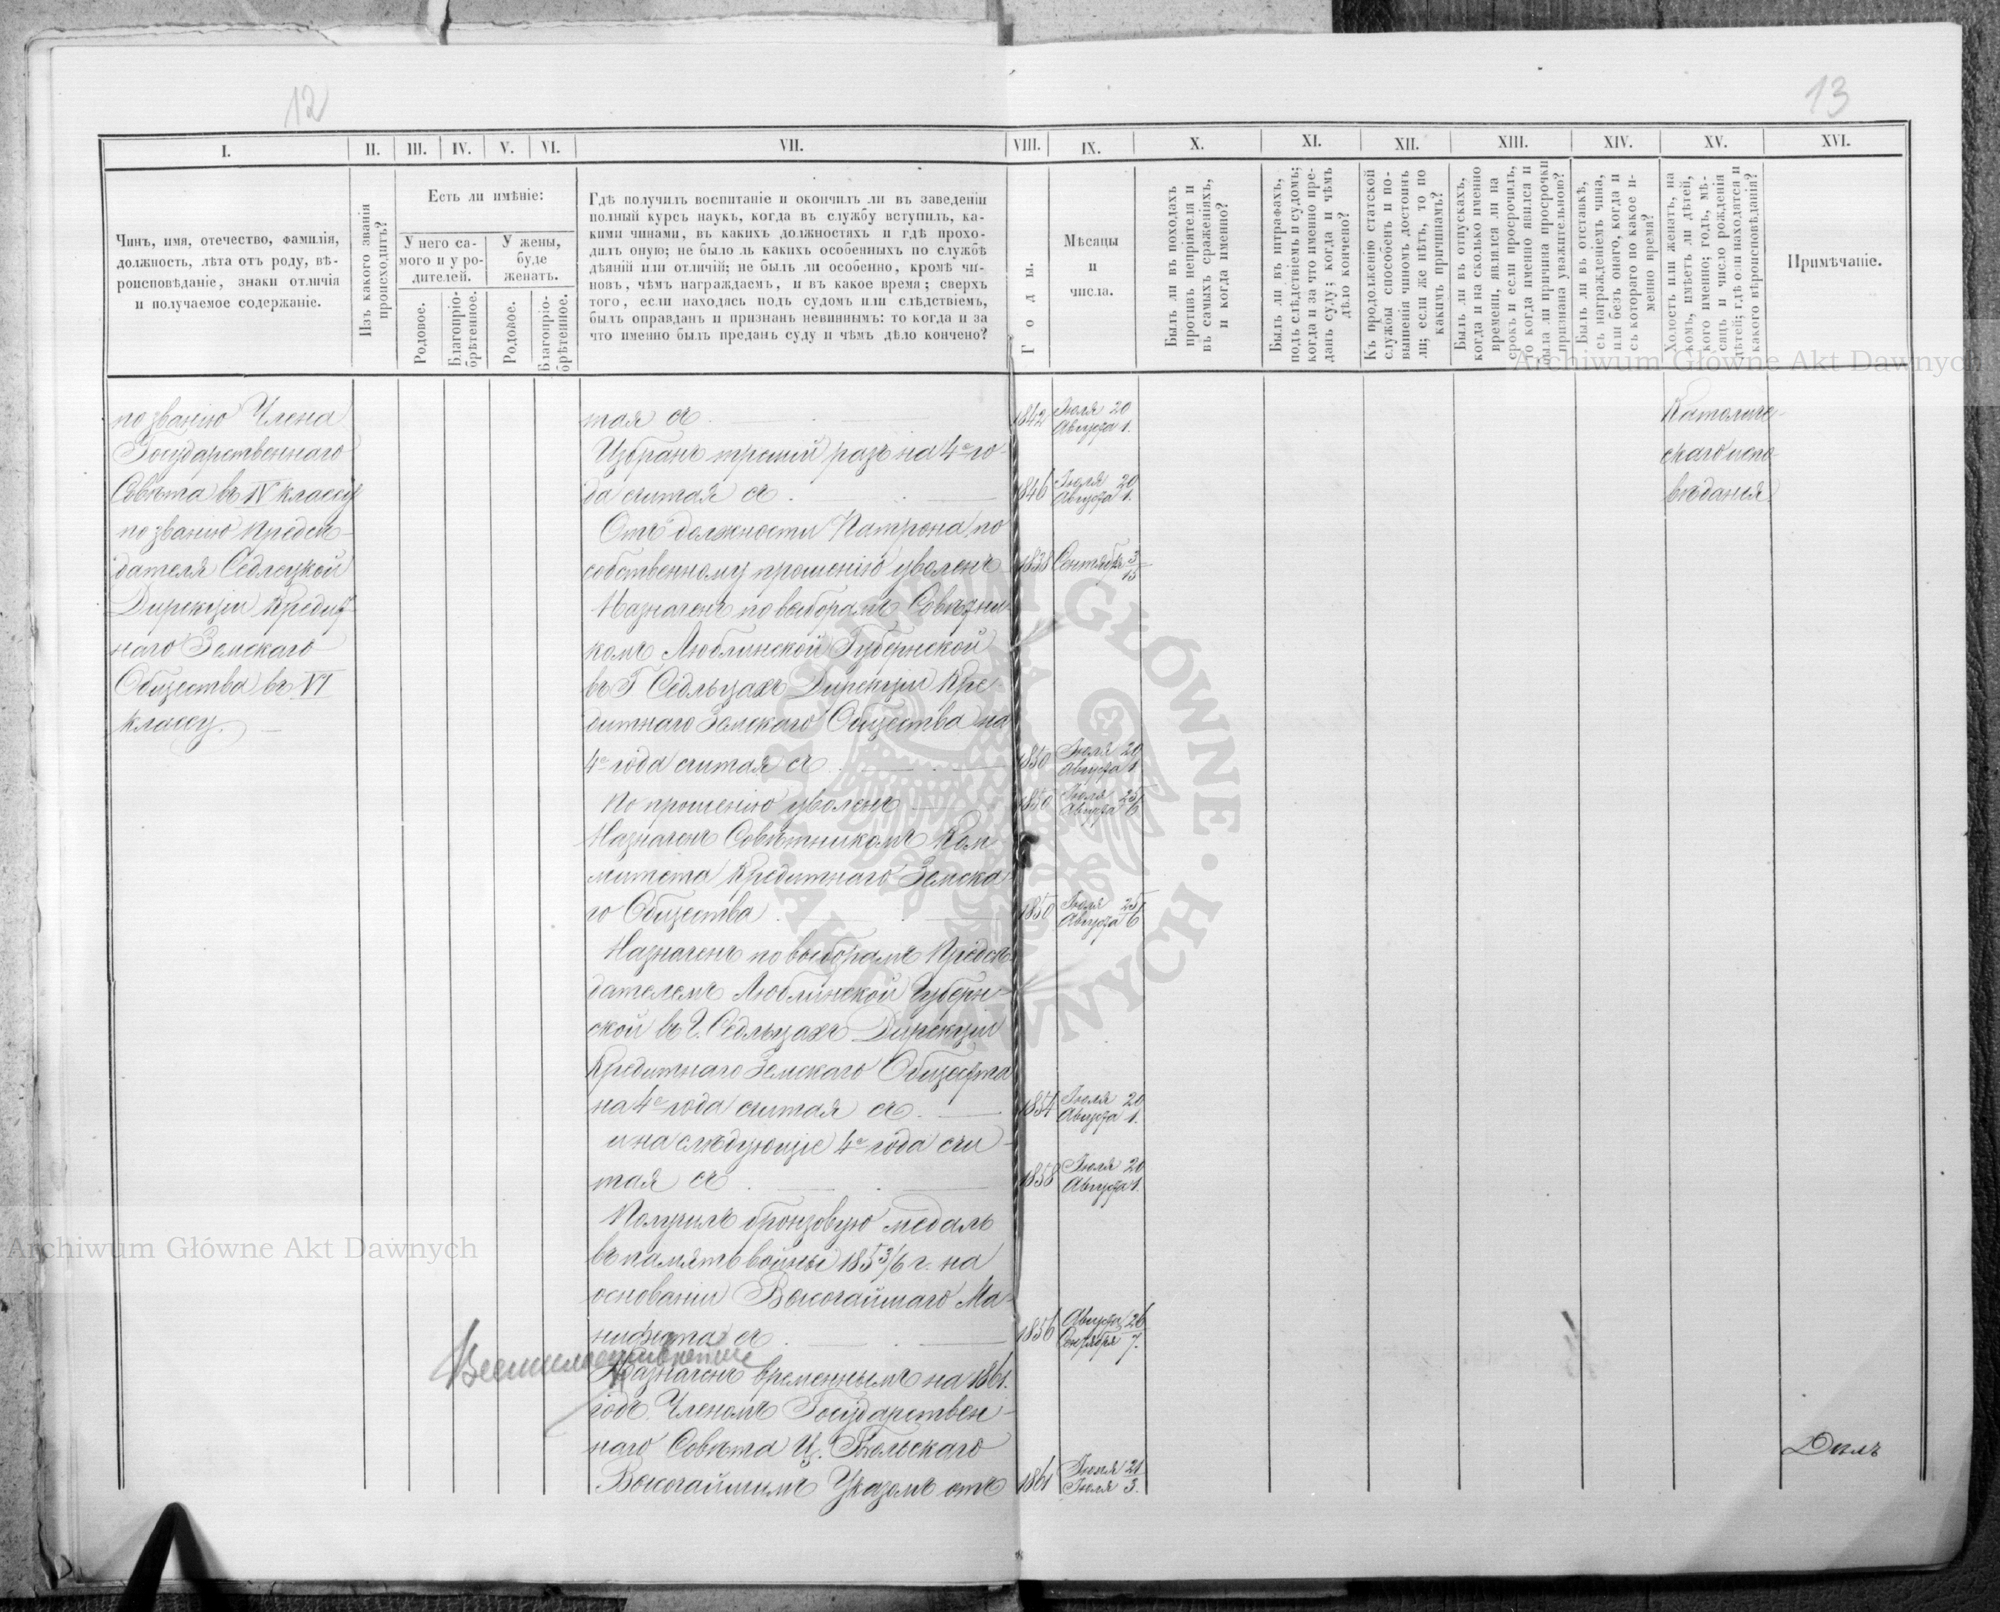 12
13
I.
II.
III.
IV.
V.
VI.
VII.
VIII.
IX.
X.
XI.
XII.
XIII.
XIV.
XV.
XVI.
Чинъ, имя, отечество, фамилія,
должность, лѣта отъ роду, вѣ-
роисповѣданіе, знаки отличія
и получаемое содержаніе.
Изъ какого званія
происходитъ?
Есть ли имѣніе:
У него са-
мого и у ро-
дителей.
У жены,
буде
женатъ.
Родовое.
Благопріо-
брѣтенное.
Родовое.
Благопріо-
брѣтенное.
Гдѣ получилъ воспитаніе и окончилъ ли въ заведеніи
полный курсъ наукъ, когда въ службу вступилъ, ка-
кими чинами, въ какихъ должностяхъ и гдѣ прохо-
дилъ оную; не было ль какихъ особенныхъ по службѣ
дѣяній или отличій; не былъ ли особенно, кромѣ чи-
новъ, чѣмъ награждаемъ, и въ какое время; сверхъ
того, если находясь подъ судомъ или слѣдствіемъ,
былъ оправданъ и признанъ невиннымъ: то когда и за
что именно былъ преданъ суду и чѣмъ дѣло кончено?
Годы.
Мѣсяцы
и
числа.
Былъ ли въ походахъ
противъ непріятеля и
въ самыхъ сраженіяхъ,
и когда именно?
Былъ ли въ штрафахъ,
подъ слѣдствіемъ и судомъ;
когда и за что именно пре-
данъ суду; когда и чѣмъ
дѣло кончено?
Къ продолженію статской
службы способенъ и по-
вышенія чиномъ достоинъ
ли; если же нѣтъ, то по
какимъ причинамъ?
Былъ ли въ отпускахъ,
когда и на сколько именно
времени, явился ли на
срокъ и если просрочилъ,
то когда именно явился и
была ли причина просрочки
признана уважительною?
Былъ ли въ отставкѣ,
съ награжденіемъ чина,
или безъ онаго, когда и
съ котораго по какое и-
менно время?
Холостъ или женатъ, на
комъ, имѣетъ ли дѣтей,
кого именно; годъ, мѣ-
сяцъ и число рожденія
дѣтей; гдѣ они находятся и
какого вѣроисповѣданія?
Примѣчаніе.
по званію Члена
Государственнаго
Совѣта въ IV классу
по званію Предсѣ-
дателя Седлецкой
Дирекціи Кредит-
наго Земскаго
Общества въ VI
классу.
тая съ
1842 Іюля 20
Августа 1.
Избранъ третій разъ на 4е го-
да считая съ
1846 Іюля 20
Августа 1.
Отъ должности Патрона по
собственному прошенію уволенъ
1838 Сентября 3/15
Назначенъ по выборамъ Совѣтни-
комъ Люблинской Губернской
въ Г Седльцахъ Дирекціи Кре
дитнаго Земскаго Общества на
4е года считая съ
1850 Іюля 20
Августа 1.
По прошенію уволенъ
1850 Іюля 25
Августа 6
Назначенъ Совѣтникомъ Ком-
митета Кредитнаго Земска-
го Общества
1850 Іюля 25
Августа 6
Назначенъ по выборамъ Предсѣ-
дателемъ Люблинской Губерн-
ской въ Г. Седльцахъ Дирекціи
Кредитнаго Земскаго Общества
на 4е года считая съ
1854 Іюля 20
Августа 1.
и на слѣдующіе 4е года счи-
тая съ
1858 Іюля 20
Августа 1.
Получилъ бронзовую медаль
въ память войны 1853/6 г. на
основаніи Высочайшаго Ма-
нифеста съ
1856 Августа 26
Сентября 7.
Всемилостивѣйше
Назначенъ временнымъ на 1861.
годъ Членомъ Государствен-
наго Совѣта Ц. Польскаго
Высочайшимъ Указомъ отъ
1861 Іюня 21
Іюля 3.
Католиче-
скаго испо-
вѣданія
Archiwum Główne Akt Dawnych
Archiwum Główne Akt Dawnych
ARCHIWUM GŁÓWNE AKT DAWNYCH